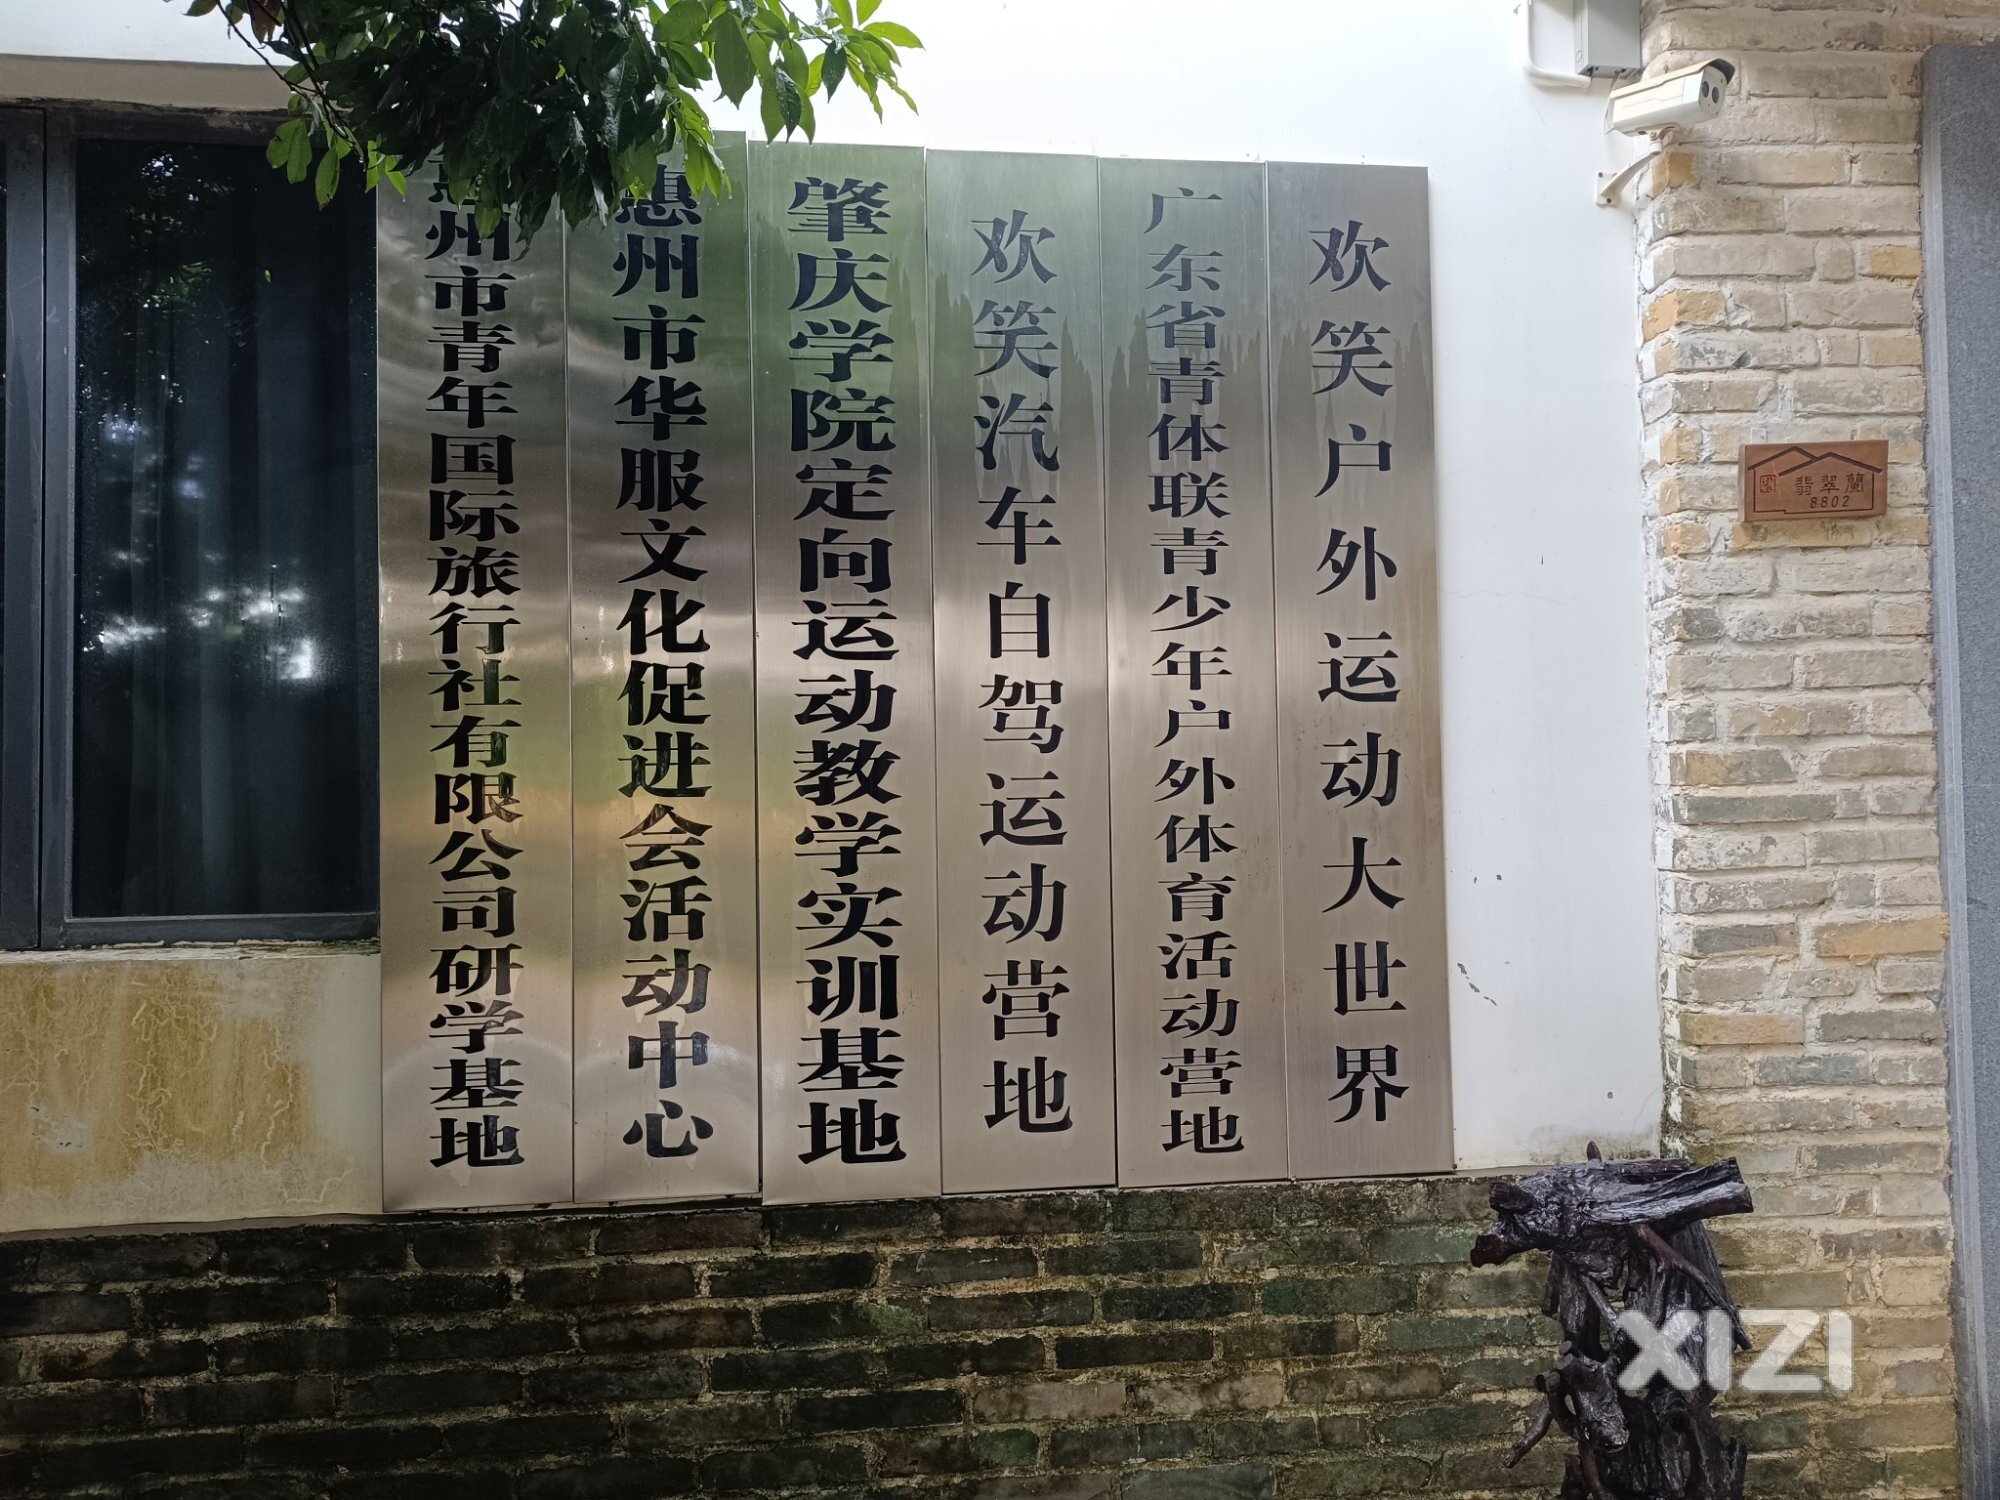 欢笑户外运动大世界
广东省青体联青少年户外体育活动营地
欢笑汽车自驾运动营地
肇庆学院定向运动教学实训基地
惠州市华服文化促进会活动中心
惠州市青年国际旅行社有限公司研学基地
翡翠蘭
8802
XIZI